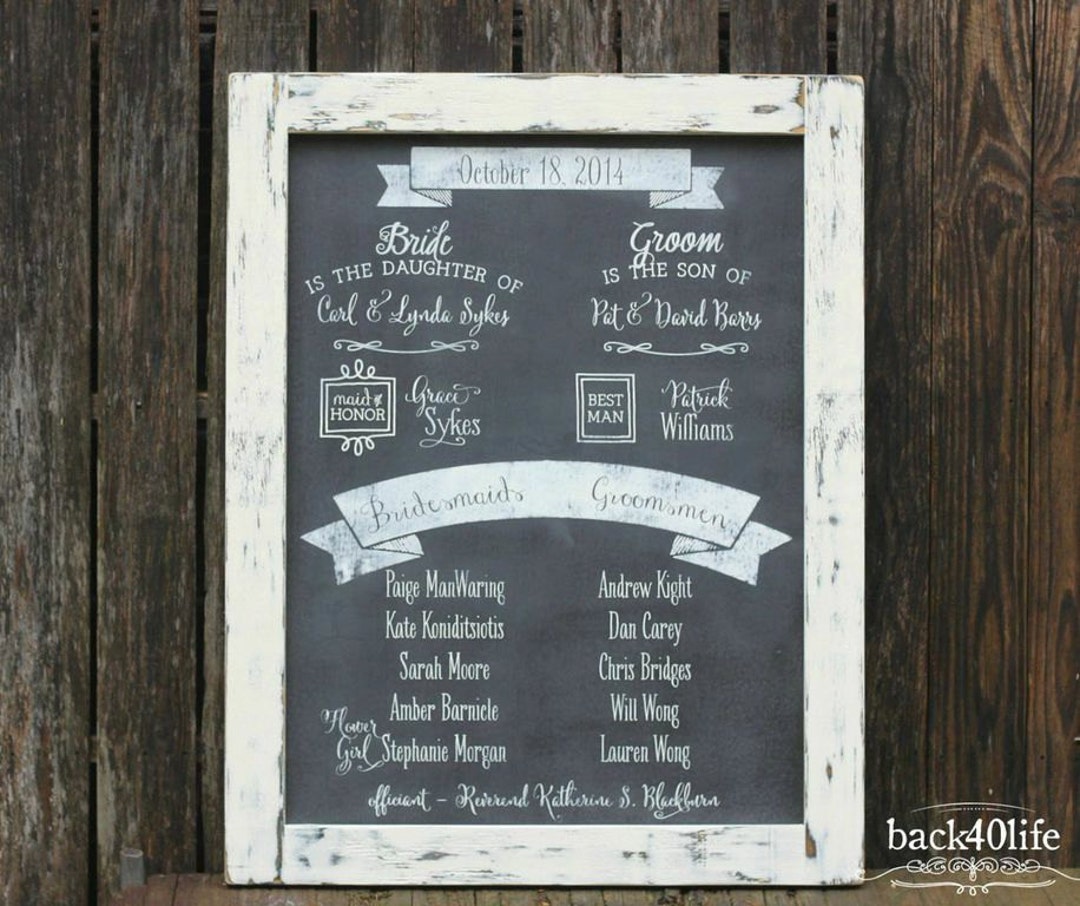 October 18, 2014
Bride
IS THE DAUGHTER OF
Carl & Lynda Sykes
Groom
IS THE SON OF
Pat & David Barrs
maid of
HONOR
Grace
Sykes
BEST
MAN
Patrick
Williams
Bridesmaids
Groomsmen
Paige ManWaring
Kate Koniditsiotis
Sarah Moore
Amber Barnicle
Flower
Girl Stephanie Morgan
Andrew Kight
Dan Carey
Chris Bridges
Will Wong
Lauren Wong
officiant - Reverend Katherine S. Blackburn
back40life